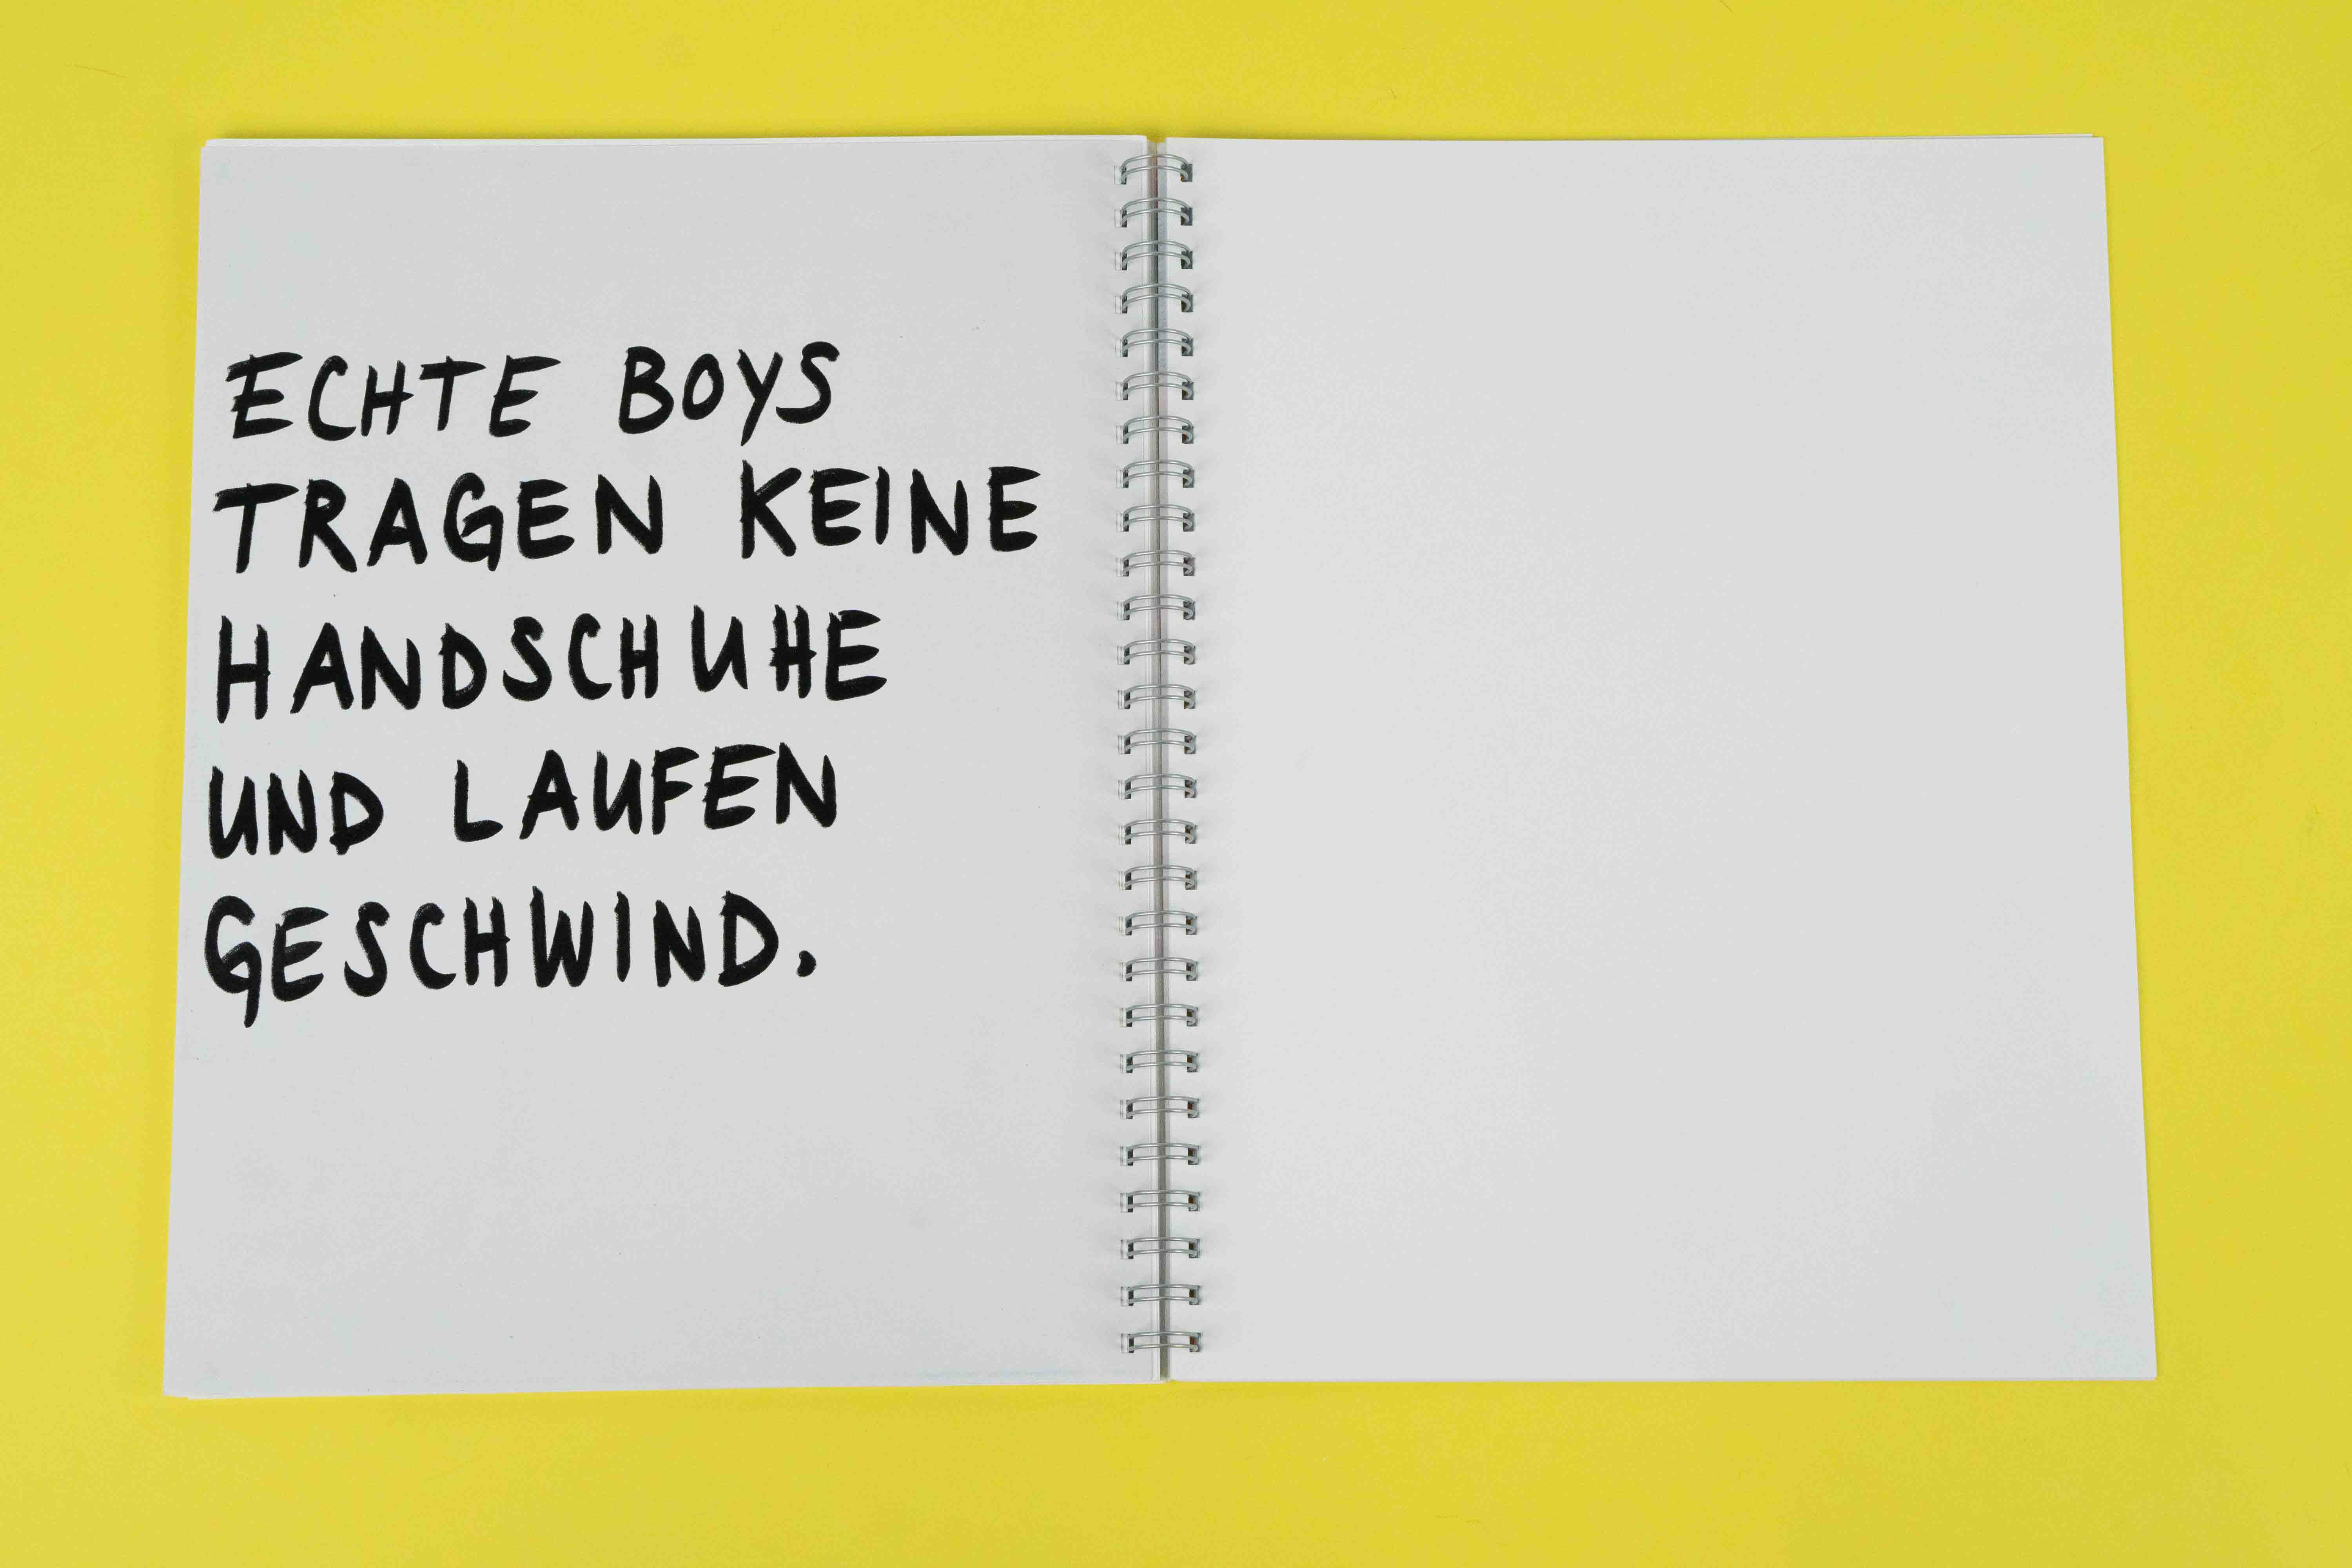 ECHTE BOYS
TRAGEN KEINE
HANDSCHUHE
UND LAUFEN
GESCHWIND.